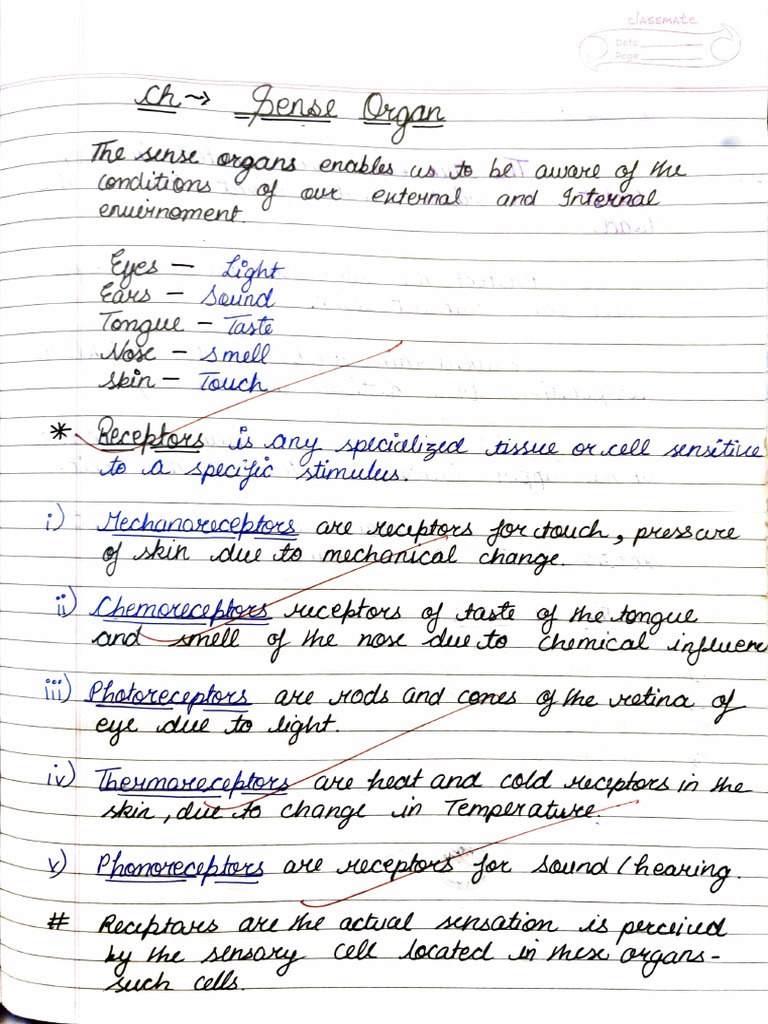 classmate
Date
Page
Ch → Sense Organ
The sense organs enables us to be aware of the
conditions of our external and Internal
enuirnoment.
Eyes — Light
Ears — Sound
Tongue — Taste
Nose — Smell
Skin — Touch
* Receptors is any specialized tissue or cell sensitive
to a specific stimulus.
i) Mechanoreceptors are receptors for touch, pressure
of skin due to mechanical change.
ii) Chemoreceptors receptors of taste of the tongue
and smell of the nose due to chemical influen
iii) Photoreceptors are rods and cones of the retina of
eye due to light.
iv) Thermoreceptors are heat and cold receptors in the
skin, due to change in Temperature.
v) Phonoreceptors are receptors for sound / hearing.
# Receptars are the actual sensation is perceived
by the sensory cell located in these organs-
such cells.